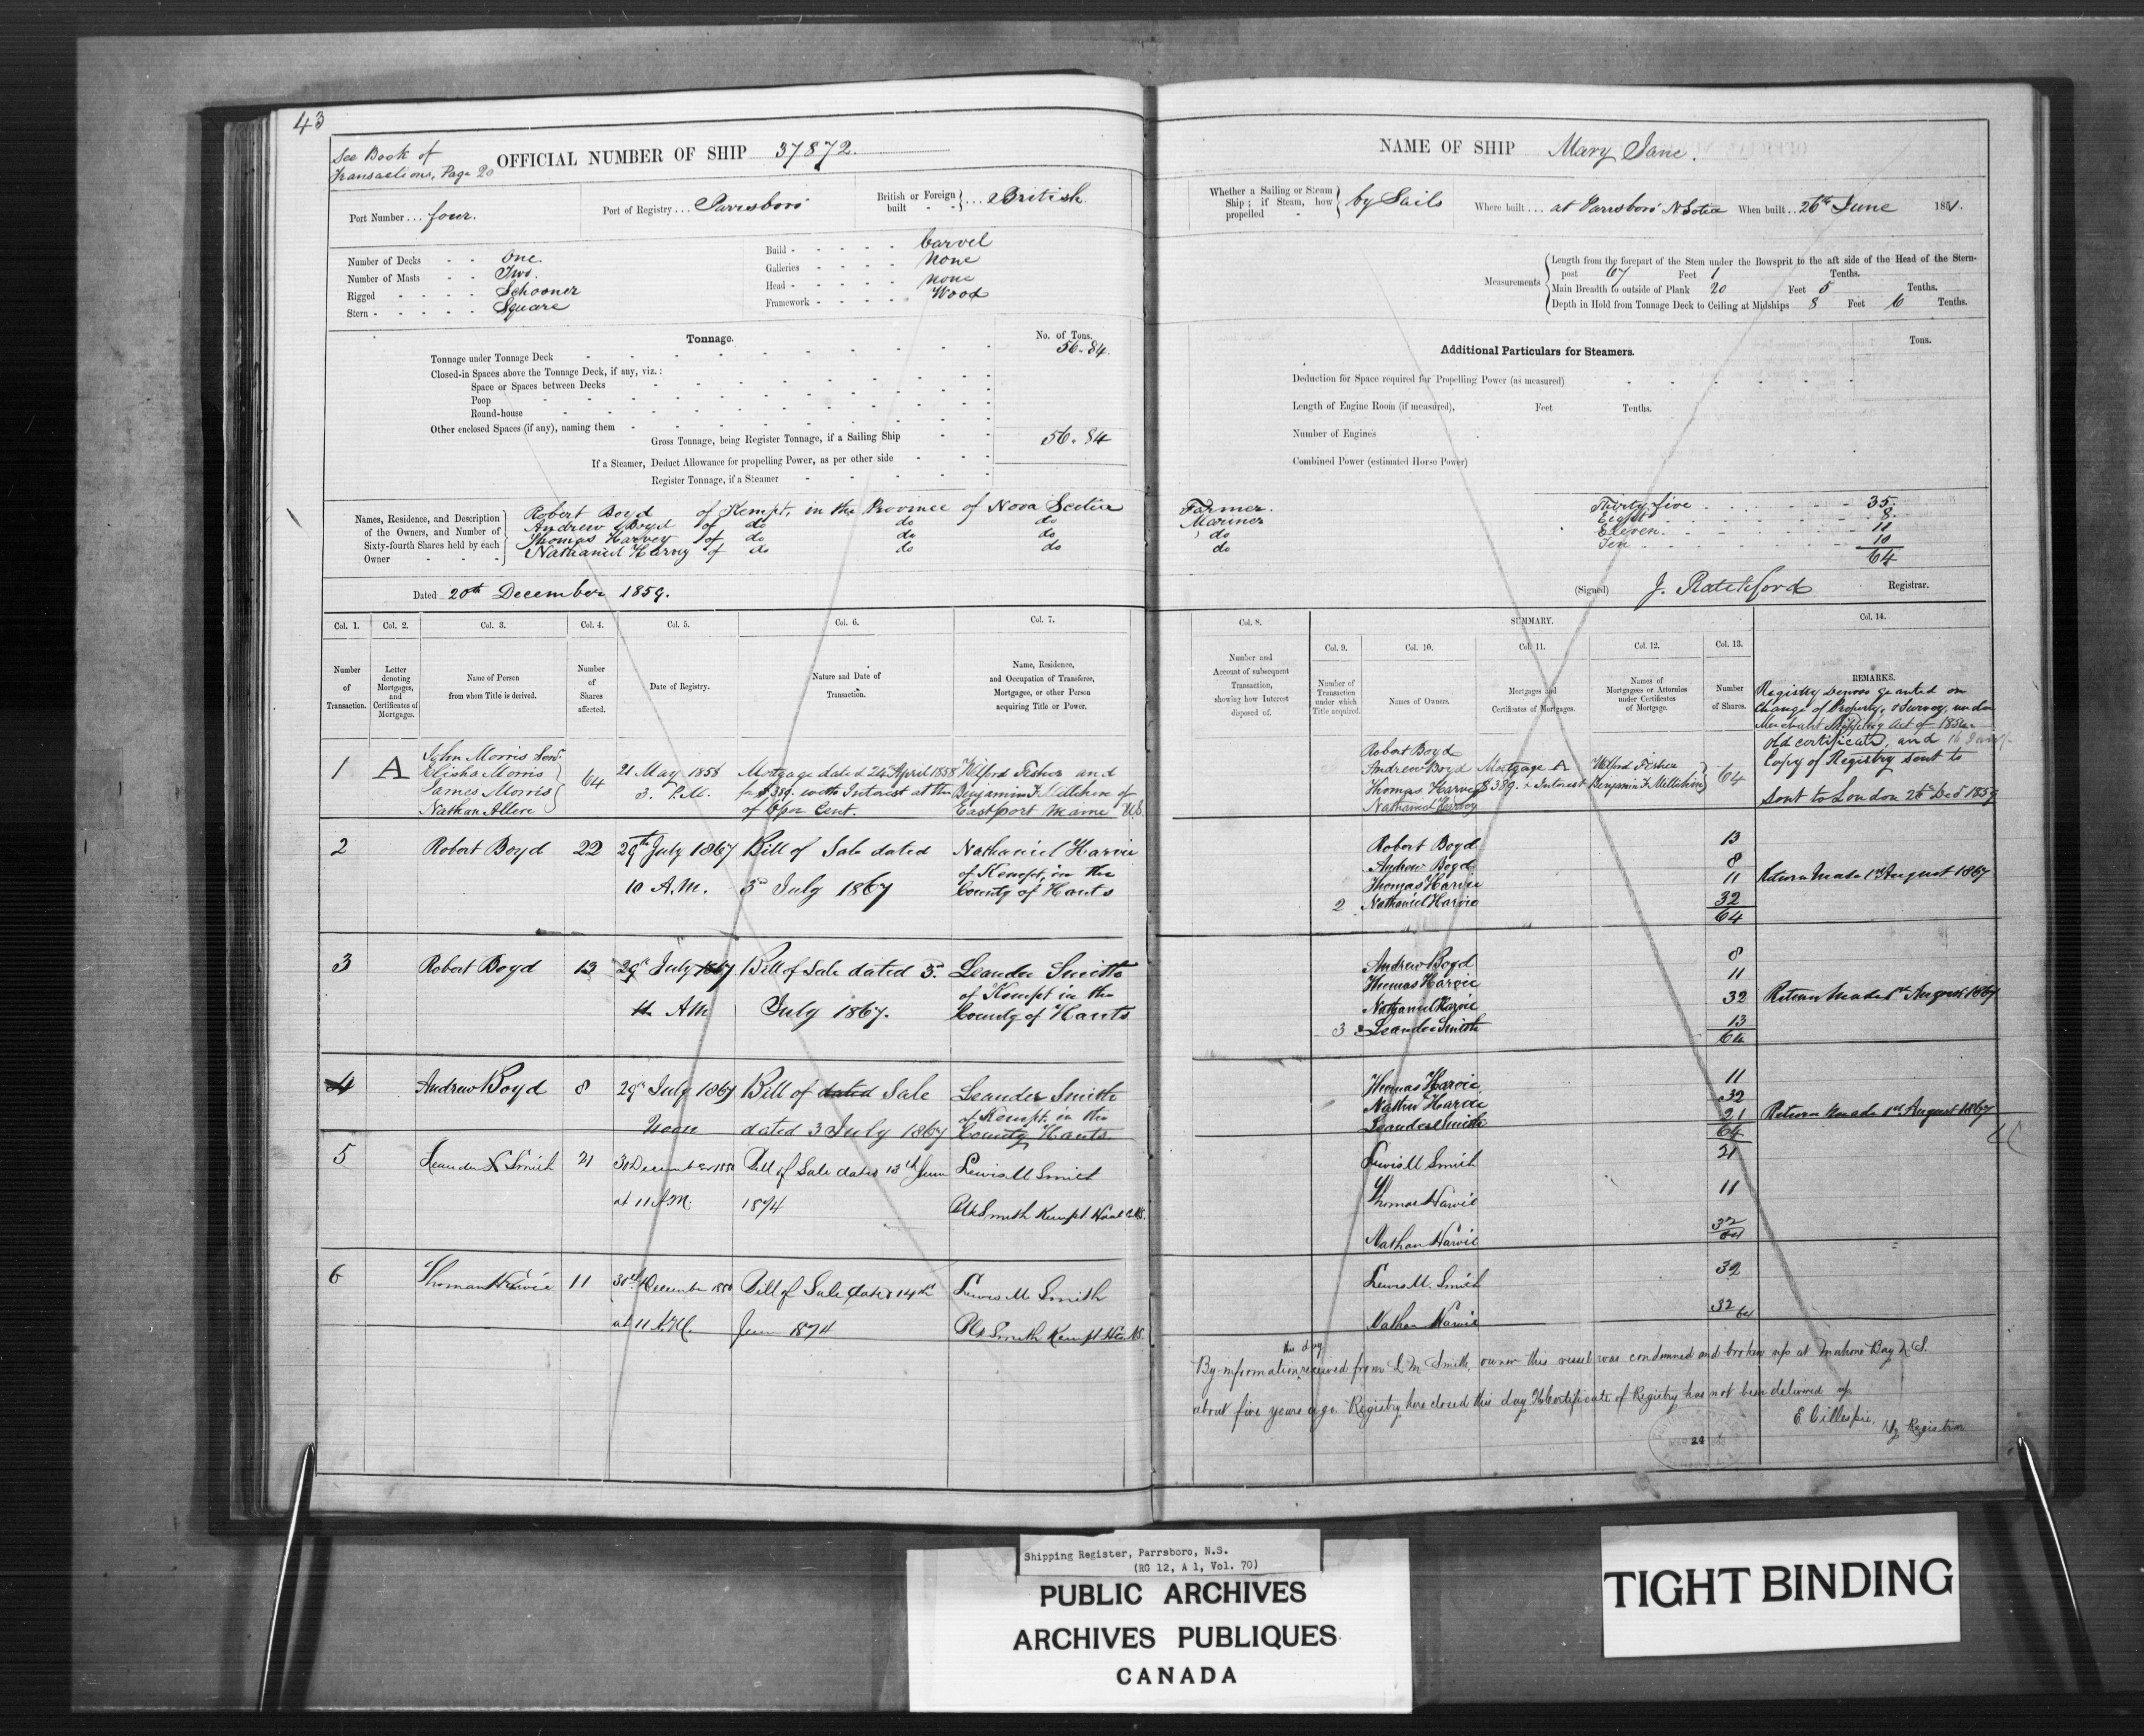 43
See Book of
Transactions, Page 20
OFFICIAL NUMBER OF SHIP 37872.
Port Number ... four.
Port of Registry ... Parrsboro
British or Foreign built } ... British
Number of Decks - - One.
Number of Masts - - Two.
Rigged - - - - Schooner
Stern - - - - - Square
Build - - - - - Carvel
Galleries - - - - none
Head - - - - - none
Framework - - - - Wood
Tonnage.
No. of Tons.
Tonnage under Tonnage Deck 56.84
Closed-in Spaces above the Tonnage Deck, if any, viz.:
Space or Spaces between Decks
Poop
Round-house
Other enclosed Spaces (if any), naming them
Gross Tonnage, being Register Tonnage, if a Sailing Ship 56.84
If a Steamer, Deduct Allowance for propelling Power, as per other side
Register Tonnage, if a Steamer
Names, Residence, and Description
of the Owners, and Number of
Sixty-fourth Shares held by each
Owner
Robert Boyd of Kempt, in the Province of Nova Scotia
Andrew Boyd of do do do
Thomas Harvey of do do do
Nathaniel Harvey of do do do
Dated 20th December 1859.
Col. 1. Col. 2. Col. 3. Col. 4. Col. 5. Col. 6. Col. 7.
Number of Transaction.
Letter denoting Mortgages, and Certificates of Mortgages.
Name of Person from whom Title is derived.
Number of Shares affected.
Date of Registry.
Nature and Date of Transaction.
Name, Residence, and Occupation of Transferee, Mortgagee, or other Person acquiring Title or Power.
1 A
John Morris
Elisha Morris
James Morris
Nathan Allen
64
21 May 1858
3. P.M.
Mortgage dated 24th April 1858
for $389. with Interest at the
of 6 per Cent.
Wilford Fisher and
Benjamin F. Milliken of
Eastport Maine U.S.
2 Robert Boyd 22
29th July 1867
10 A.M.
Bill of Sale dated
3d July 1867
Nathaniel Harvie
of Kempt, in the
County of Hants
3 Robert Boyd 13
29th July 1867
11 AM
Bill of Sale dated 3.
July 1867.
Leander Smith
of Kempt in the
County of Hants
4 Andrew Boyd 8
29th July 1867
Noon
Bill of dated Sale
dated 3 July 1867
Leander Smith
of Kempt, in the
County Hants
5 Leander S Smith 21
30 December 1880
at 11 A.M.
Bill of Sale dated 13th June
1874
Lewis M Smith
Smith Kempt Hants Co NS.
6 Thomas Harvie 11
30th December 1880
at 11 A.M.
Bill of Sale dated 14th
June 1874
Lewis M. Smith
Smith Kempt NS.
NAME OF SHIP Mary Jane.
Whether a Sailing or Steam Ship; if Steam, how propelled } by Sails
Where built ... at Parrsboro N Scotia
When built .. 26th June 1851.
Measurements
Length from the forepart of the Stem under the Bowsprit to the aft side of the Head of the Stern-
post 67 Feet 1 Tenths.
Main Breadth to outside of Plank 20 Feet 5 Tenths.
Depth in Hold from Tonnage Deck to Ceiling at Midships 8 Feet 6 Tenths.
Additional Particulars for Steamers.
Tons.
Deduction for Space required for Propelling Power (as measured)
Length of Engine Room (if measured), Feet Tenths.
Number of Engines
Combined Power (estimated Horse Power)
Farmer. Thirty five 35.
Mariner Eight 8.
do Eleven 11
do Ten 10
64
(Signed) J. Ratchford Registrar.
Col. 8. SUMMARY. Col. 14.
Col. 9. Col. 10. Col. 11. Col. 12. Col. 13.
Number and Account of subsequent Transaction, showing how Interest disposed of.
Number of Transaction under which Title acquired.
Names of Owners.
Mortgages and Certificates of Mortgages.
Names of Mortgagees or Attornies under Certificates of Mortgage.
Number of Shares.
REMARKS.
Registry denovo granted on
Change of Property, & Survey under
Merchant Shipping Act of 1854
old certificate, and
Copy of Registry sent to
sent to London 26th Decr 1859
Robert Boyd
Andrew Boyd
Thomas Harvey
Nathaniel Harvey
Mortgage A
$389. & Interest
Wilford Fisher
Benjamin F. Milliken
64
Robert Boyd 13
Andrew Boyd 8
Thomas Harvie 11
2 Nathaniel Harvie 32
64
Return made 1st August 1867
Andrew Boyd 8
Thomas Harvie 11
Nathaniel Harvie 32
3 Leander Smith 13
64
Return made 1st August 1867
Thomas Harvie 11
Nathan Harvie 32
Leander Smith 21
64
Return made 1st August 1867
Lewis M Smith 21
Thomas Harvie 11
Nathan Harvie 32
64
Lewis M. Smith 32
Nathan Harvie 32
64
this day
By information received from L M Smith, owner this vessel was condemned and broken up at Mahone Bay N S.
about five years ago. Registry here closed this day. The Certificate of Registry has not been delivered up
E Gillespie, Registrar
24
Shipping Register, Parrsboro, N.S.
(RG 12, A 1, Vol. 70)
PUBLIC ARCHIVES
ARCHIVES PUBLIQUES
CANADA
TIGHT BINDING